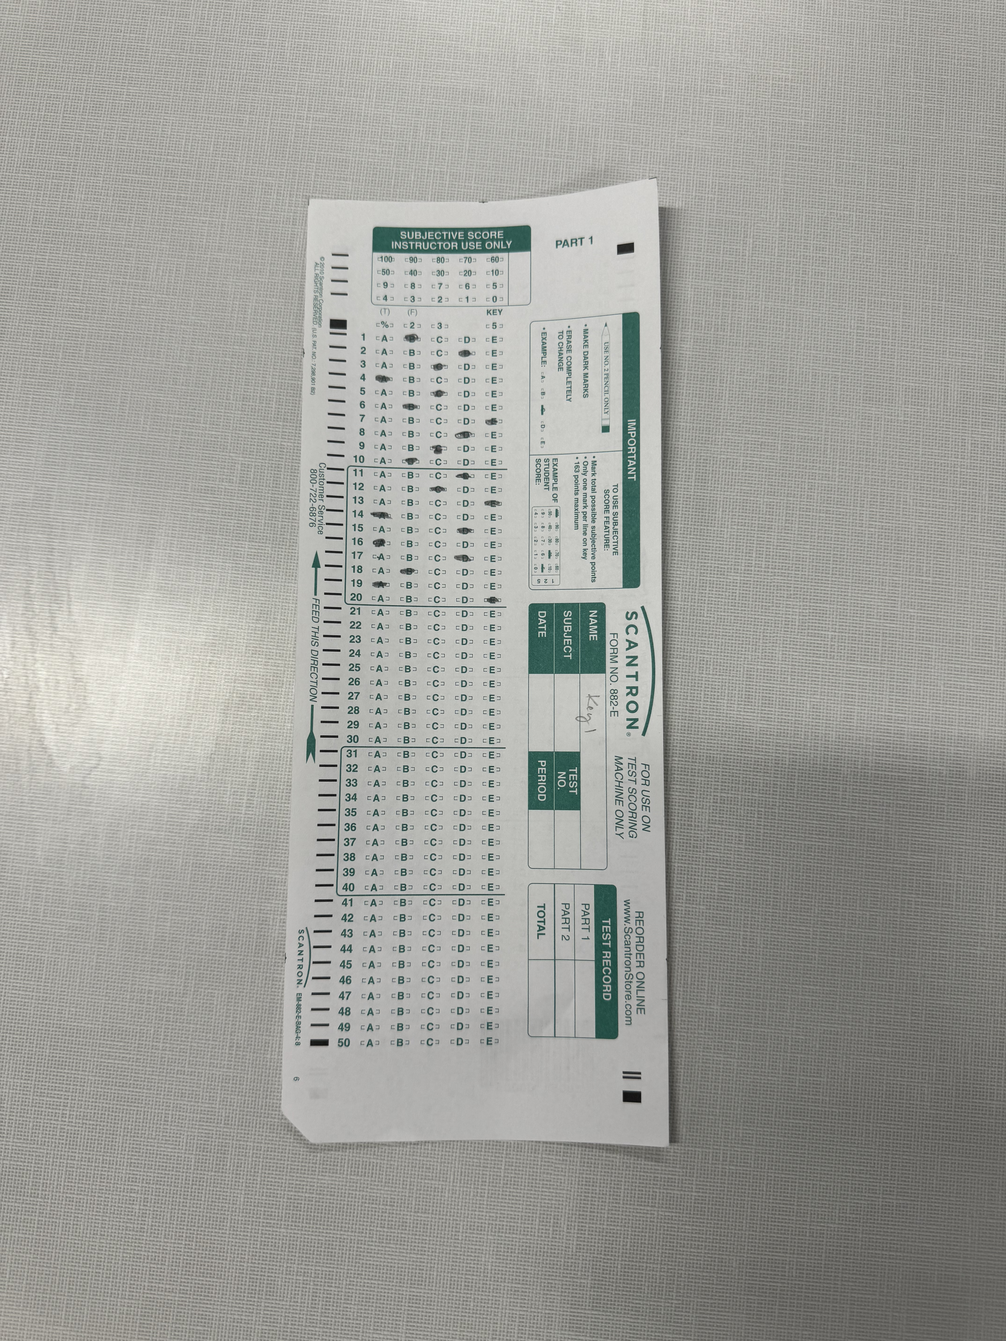 SUBJECTIVE SCORE
INSTRUCTOR USE ONLY
100 90 80 70 60
50 40 30 20 10
9 8 7 6 5
4 3 2 1 0
(T) (F) KEY
% 2 3 5
1 A C D E
2 A B C E
3 A B D E
4 B C D E
5 A B D E
6 A C D E
7 A B C D
8 A B C E
9 A B D E
10 A C D E
11 A B C E
12 A B D E
13 A B C D
14 B C D E
15 A B C E
16 B C D E
17 A B C E
18 A C D E
19 B C D E
20 A B C D
21 A B C D E
22 A B C D E
23 A B C D E
24 A B C D E
25 A B C D E
26 A B C D E
27 A B C D E
28 A B C D E
29 A B C D E
30 A B C D E
31 A B C D E
32 A B C D E
33 A B C D E
34 A B C D E
35 A B C D E
36 A B C D E
37 A B C D E
38 A B C D E
39 A B C D E
40 A B C D E
41 A B C D E
42 A B C D E
43 A B C D E
44 A B C D E
45 A B C D E
46 A B C D E
47 A B C D E
48 A B C D E
49 A B C D E
50 A B C D E
PART 1
IMPORTANT
USE NO. 2 PENCIL ONLY
• MAKE DARK MARKS
• ERASE COMPLETELY
TO CHANGE
• EXAMPLE: A B D E
TO USE SUBJECTIVE
SCORE FEATURE:
• Mark total possible subjective points
• Only one mark per line on key
• 163 points maximum
EXAMPLE OF
STUDENT
SCORE:
SCANTRON®
FORM NO. 882-E
FOR USE ON
TEST SCORING
MACHINE ONLY
REORDER ONLINE
www.ScantronStore.com
NAME Key 1
SUBJECT
TEST
NO.
DATE
PERIOD
TEST RECORD
PART 1
PART 2
TOTAL
© 2010 Scantron Corporation
ALL RIGHTS RESERVED.
Customer Service
800-722-6876
FEED THIS DIRECTION
SCANTRON.
6